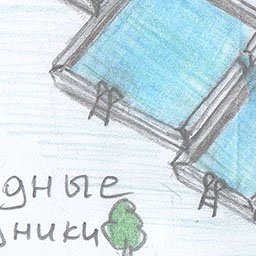 дные
дники